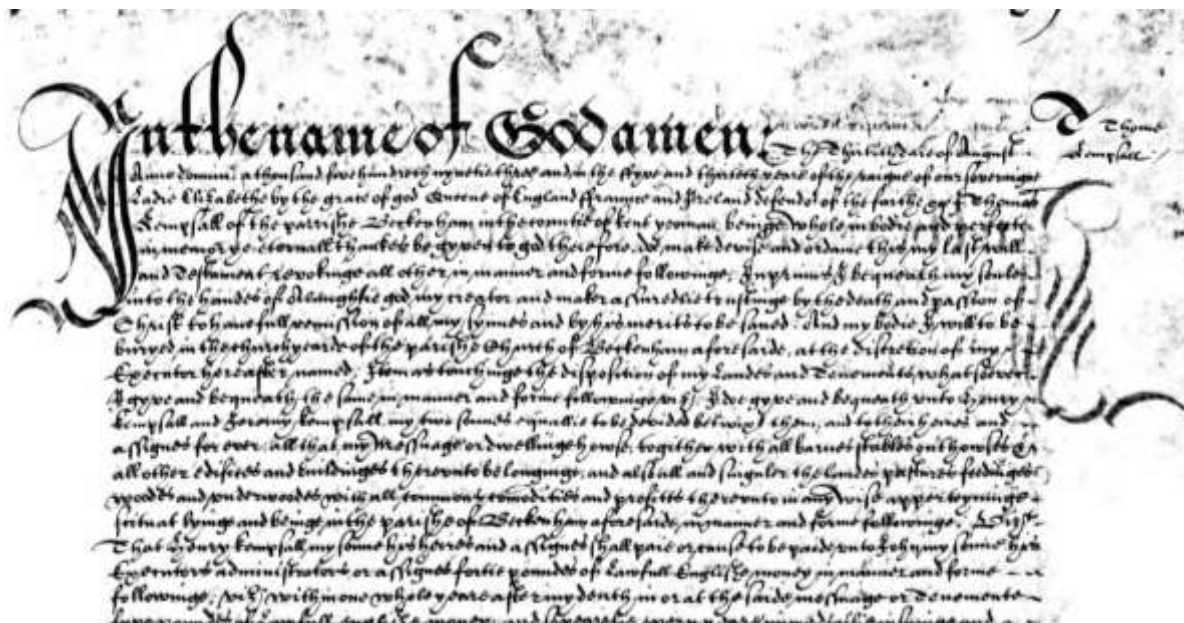 In the name of God amen: The Thirtith daie of August
Anno domini a thousand five hundreth nynetie three and in the fyve and thirteth yeare of the raigne of our soveraigne
Ladie Elizabethe by the grace of god Queene of England ffraunce and Ireland defender of the faithe &c I Thomas
Kempsall of the parrishe Beckenham in the countie of Kent yeoman, being whole in bodie and perfecte
in memorye eternall thankes be gyven to god therefore, do make devise and ordaine this my last will
and Testament revokinge all other, in manner and forme followinge, Inprimis I bequeath my soule
into the handes of Almightie god my creator and maker assuredlie trustinge by the death and passion of
Christ to have full remission of all my synnes and by his merits to be saved: And my bodie I will to be
buryed in the churchyearde of the parishe Church of Beckenham aforesaide, at the discretion of my
Executor hereafter named, Item as touchinge the disposition of my Landes and Tenements, whatsoever
I gyve and bequeath the same in manner and forme followinge viz, I doe gyve and bequeath unto Henry
Kempsall and Jeremy Kempsall my two sonnes equallie to be devided betwixt them, and to their heires and
assignes for ever, all that my messuage or dwellinge howse, togither with all barnes stables outhowses &
all other edifices and buildinges thereunto belonginge, and also all and singuler the landes pastures feedinges
woodes and underwoodes with all comodities and profitts thereunto in any wise apperteyninge
scituat lyinge and beinge in the parishe of Beckenham aforesaide, in manner and forme followinge, First
That Henry Kempsall my sonne his heires and assignes shall paie or cause to be paide unto John my sonne his
Executors administrators or assignes fortie poundes of lawfull Englishe money in manner and forme
followinge, viz, within one whole yeare after my death in or at the saide messuage or Tenemente
of lawfull englishe money, and
T Thome
Kempsall